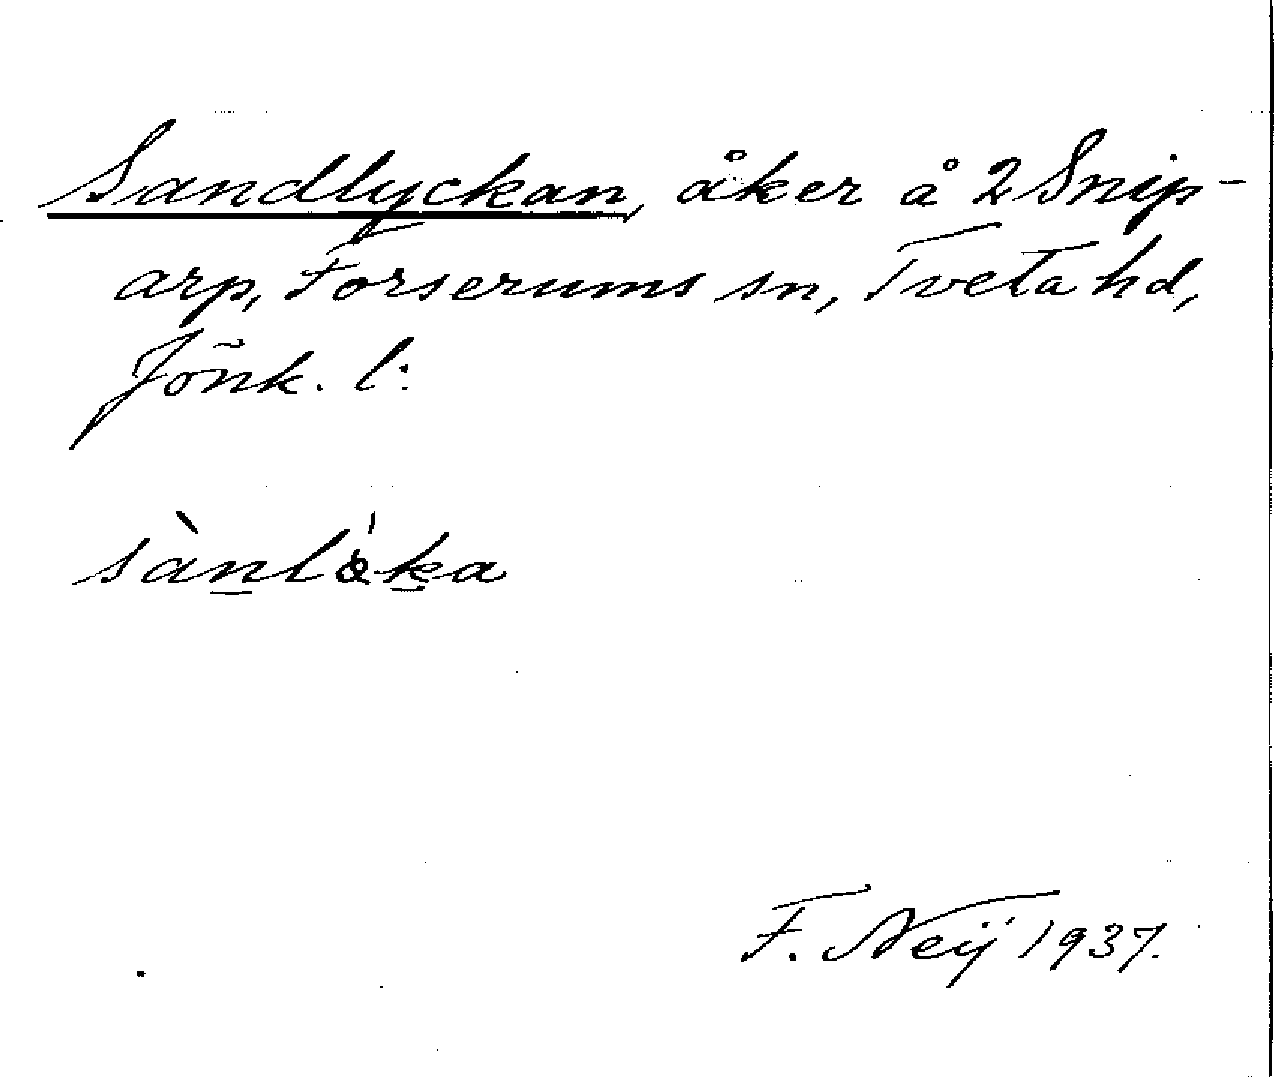 Sandlyckan, åker å 2 Snip-
arp, Forserums sn, Tveta hd,
Jönk. l:
F. Neij 1937.